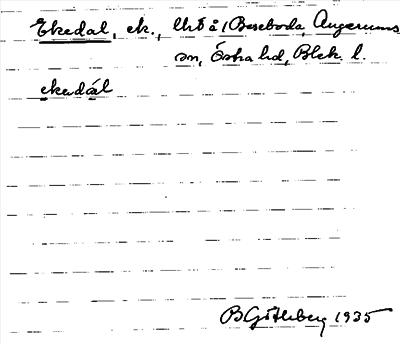 Ekedal, ek., Uht å (Baseboda, Augerums
sn, Östra hd, Blek. l.
ekedál
B Götlberg 1935